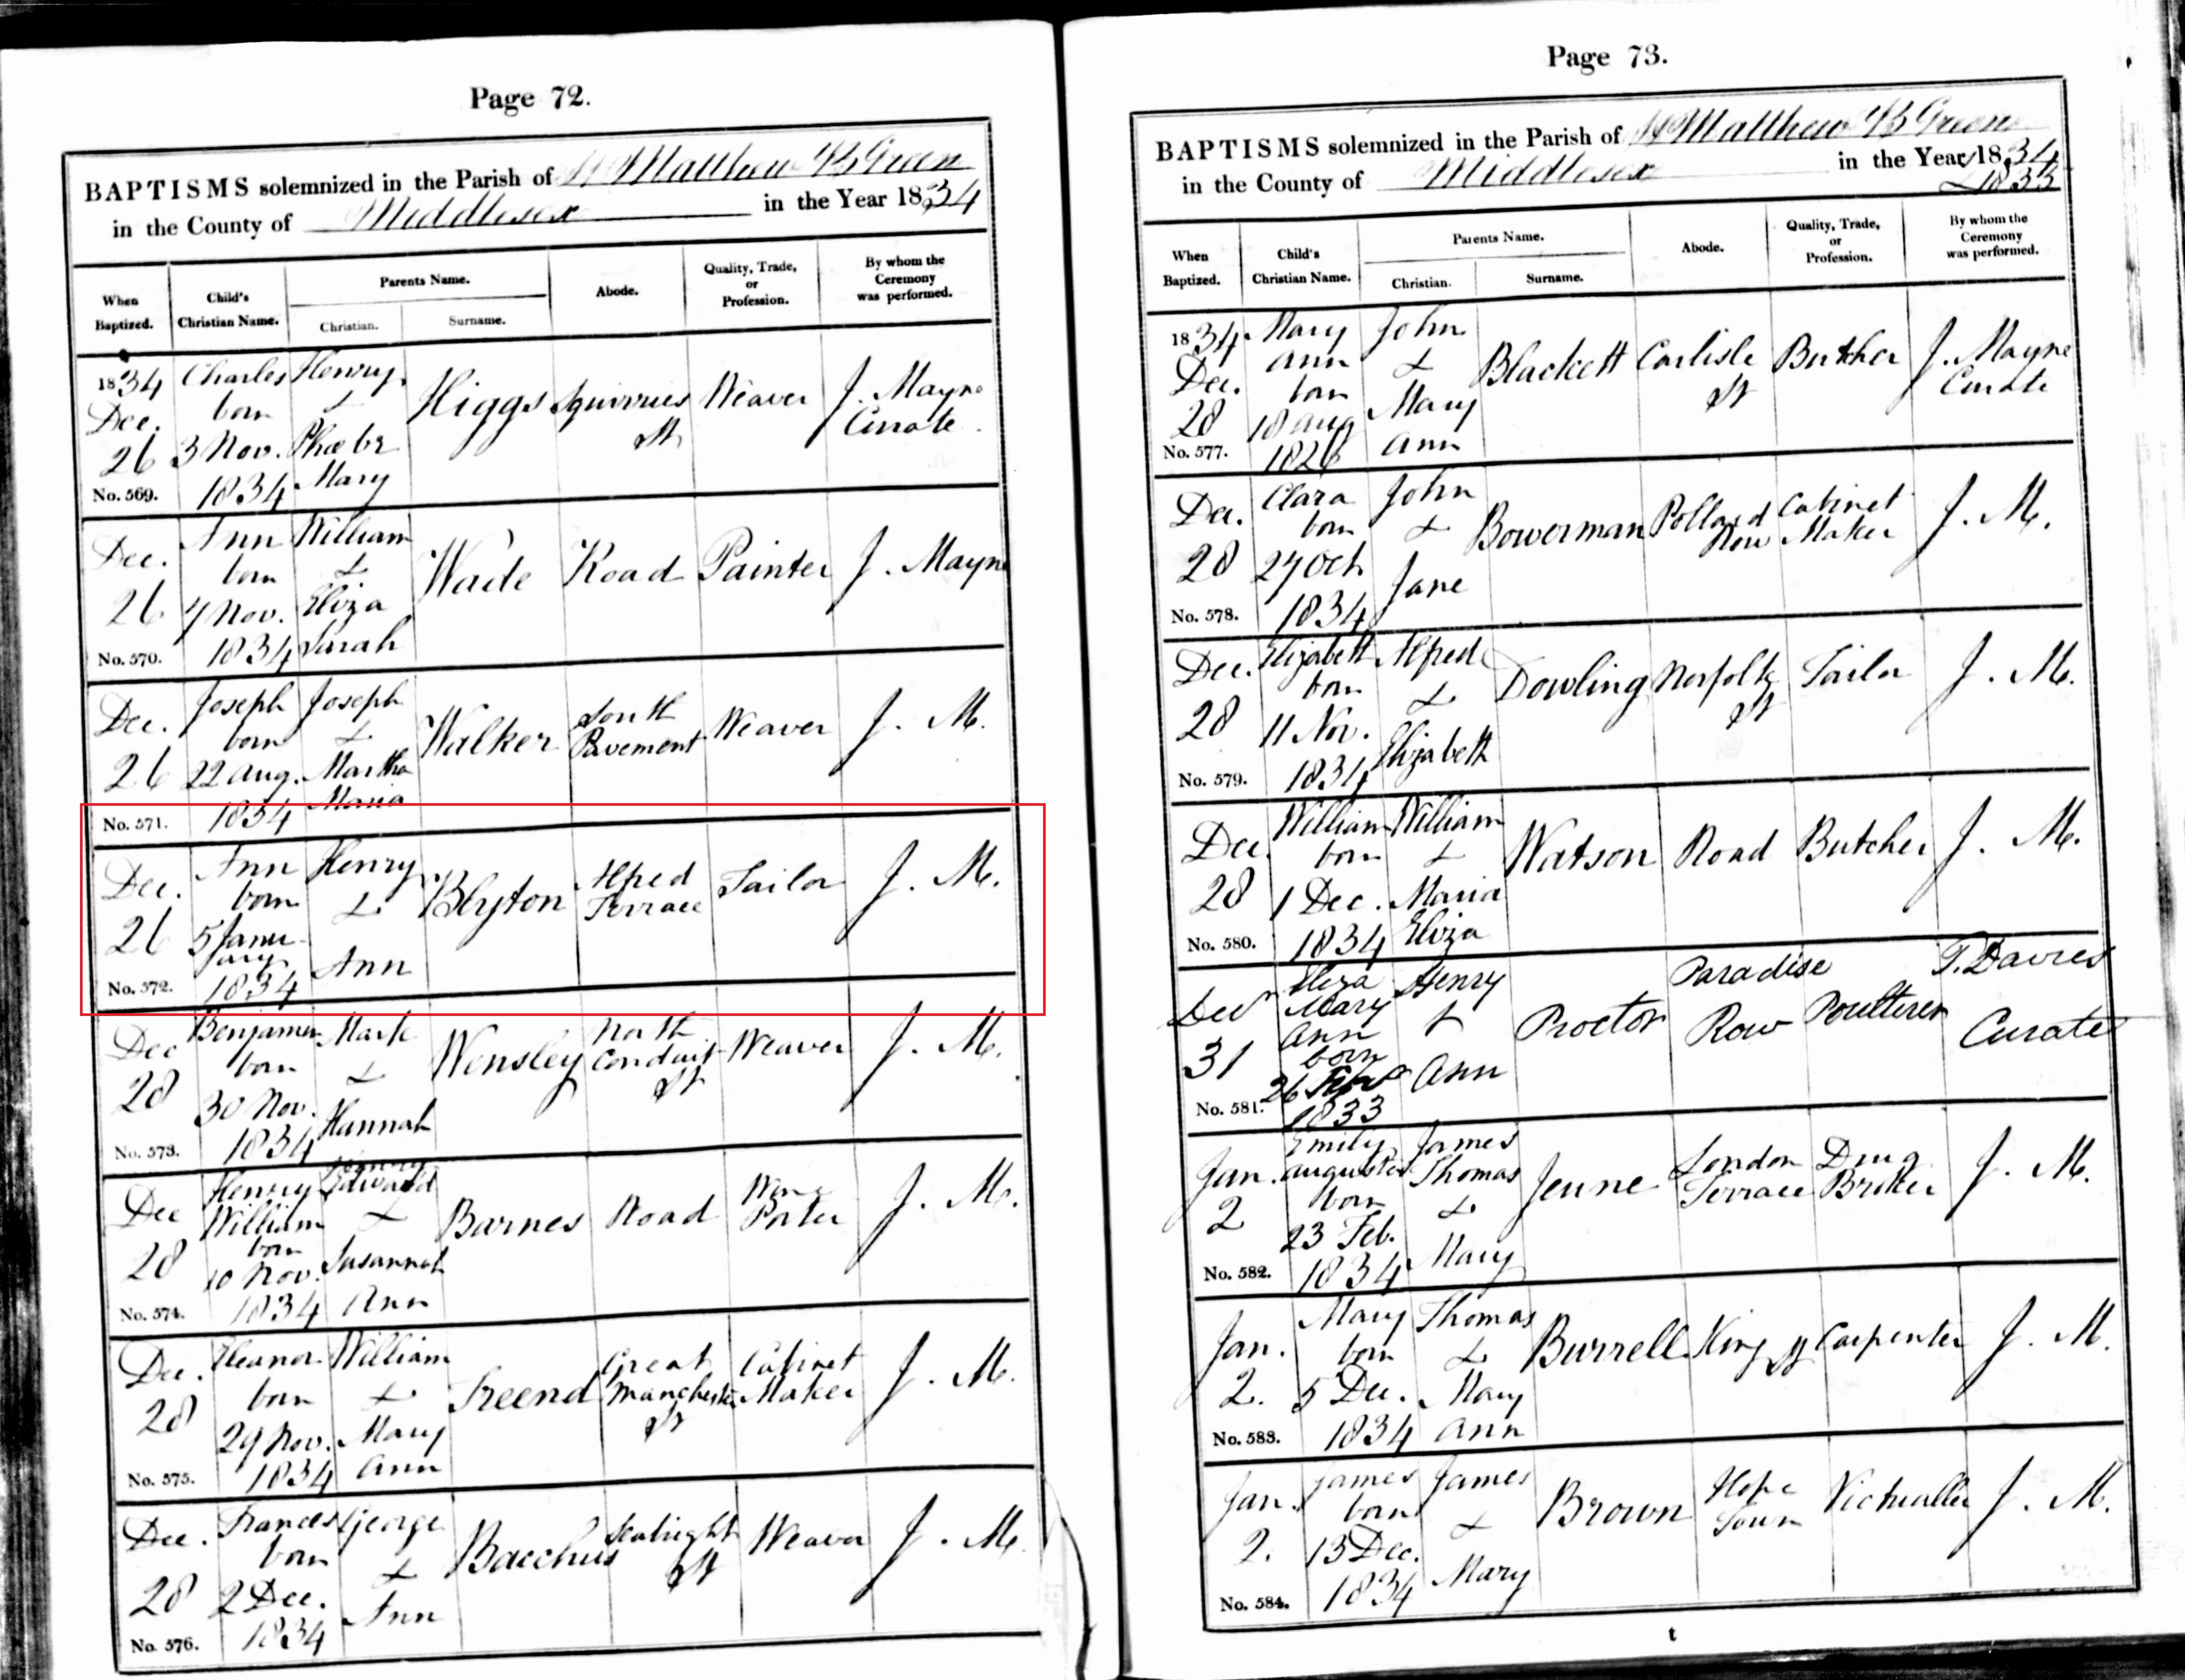 Page 72.
BAPTISMS solemnized in the Parish of St Matthew B Green
in the County of Middlesex in the Year 1834
When Baptized.
Child's Christian Name.
Parents Name.
Christian.
Surname.
Abode.
Quality, Trade, or Profession.
By whom the Ceremony was performed.
1834
Dec. 26
No. 569.
Charles born 3 Nov. 1834
Henry & Phœbe Mary
Higgs
Squirries St
Weaver
J. Mayne Curate
Dec. 26
No. 570.
Ann born 7 Nov. 1834
William & Eliza Sarah
Wade
Road
Painter
J. Mayne
Dec. 26
No. 571.
Joseph born 22 Aug. 1834
Joseph & Martha Maria
Walker
South Pavement
Weaver
J. M.
Dec. 26
No. 572.
Ann born 5 January 1834
Henry & Ann
Blyton
Alfred Terrace
Tailor
J. M.
Dec 28
No. 573.
Benjamin born 30 Nov. 1834
Mark & Hannah
Wensley
North Conduit St
Weaver
J. M.
Dec 28
No. 574.
Henry William born 10 Nov. 1834
Edward & Susannah Ann
Barnes
Road
Wine Porter
J. M.
Dec. 28
No. 575.
Eleanor born 29 Nov. 1834
William & Mary Ann
Treend
Great Manchester St
Cabinet Maker
J. M.
Dec. 28
No. 576.
Frances born 2 Dec. 1834
George & Ann
Bacchus
Seabright St
Weaver
J. M.
Page 73.
BAPTISMS solemnized in the Parish of St Matthew B Green
in the County of Middlesex in the Year 1834
1835
When Baptized.
Child's Christian Name.
Parents Name.
Christian.
Surname.
Abode.
Quality, Trade, or Profession.
By whom the Ceremony was performed.
1834
Dec. 28
No. 577.
Mary Ann born 18 Aug 1826
John & Mary Ann
Blackett
Carlisle St
Butcher
J. Mayne Curate
Dec. 28
No. 578.
Clara born 27 Oct 1834
John & Jane
Bowerman
Pollard Row
Cabinet Maker
J. M.
Dec. 28
No. 579.
Elizabeth born 11 Nov. 1834
Alfred & Elizabeth
Dowling
Norfolk St
Tailor
J. M.
Dec. 28
No. 580.
William born 1 Dec. 1834
William & Maria Eliza
Watson
Road
Butcher
J. M.
Decr 31
No. 581.
Eliza Mary Ann born 26 1833
Henry & Ann
Proctor
Paradise Row
Poulterer
T. Davies Curate
Jan. 2
No. 582.
Emily Augusta born 23 Feb. 1834
James Thomas & Mary
Jeune
London Terrace
Drug Broker
J. M.
Jan. 2.
No. 583.
Mary born 5 Dec. 1834
Thomas & Mary Ann
Burrell
King St
Carpenter
J. M.
Jan. 2.
No. 584.
James born 13 Dec. 1834
James & Mary
Brown
Hope Town
Victualler
J. M.
t